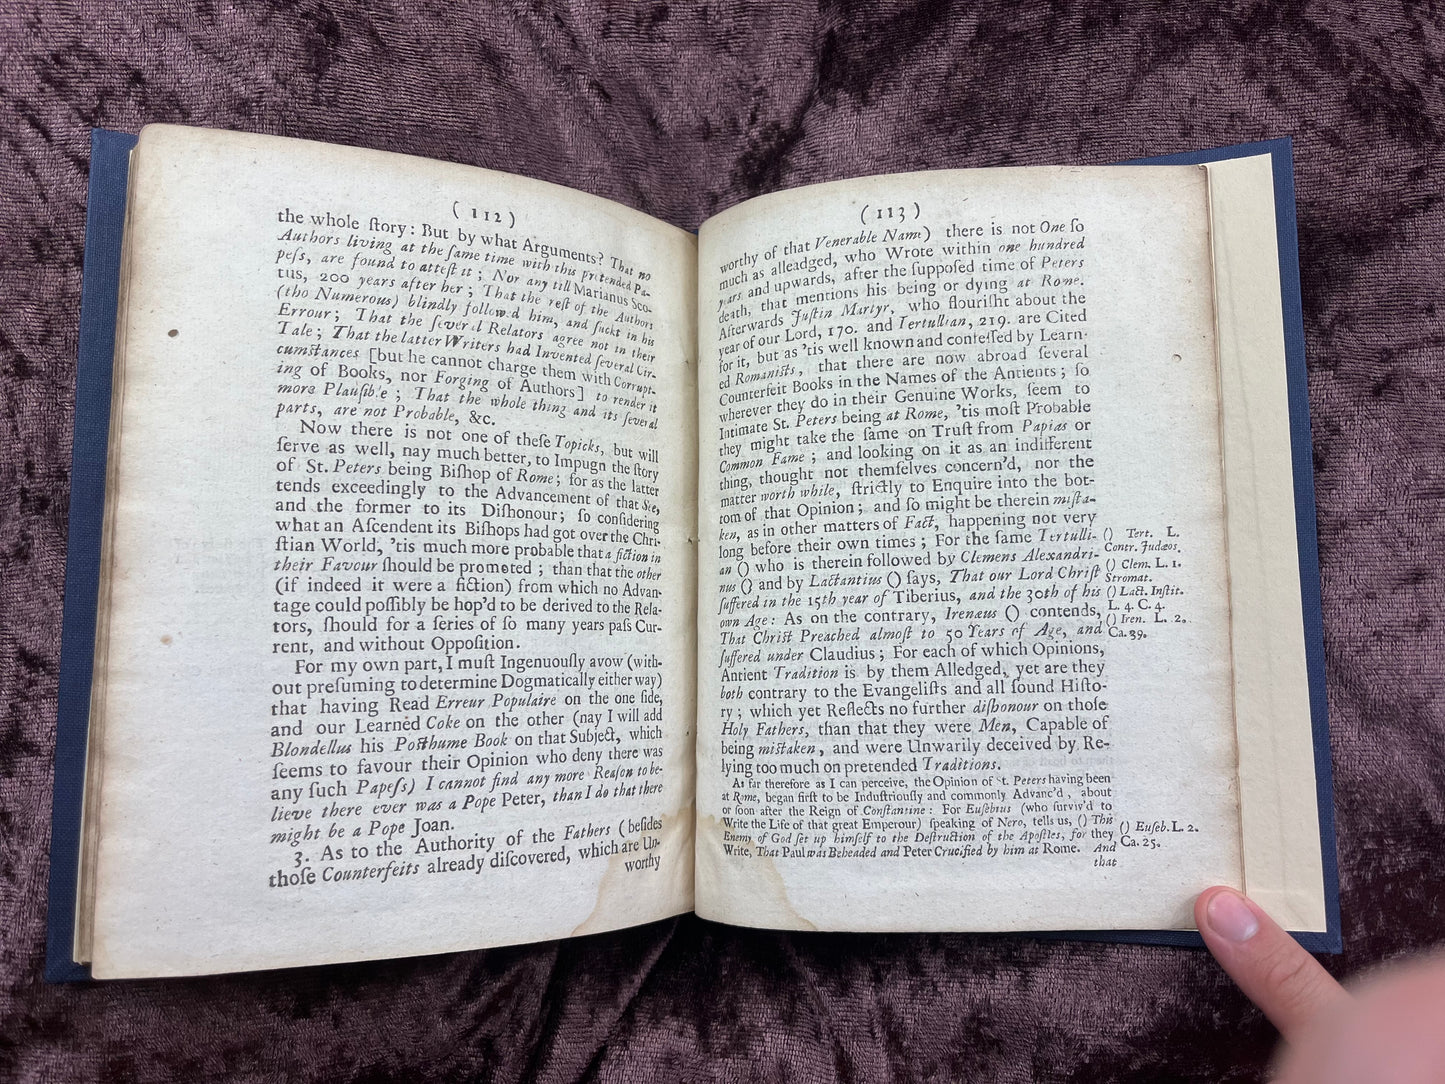 ( 112 )
the whole ſtory: But by what Arguments? That no
Authors living at the ſame time with this pretended Pa-
peſs, are found to atteſt it; Nor any till Marianus Sco-
tus, 200 years after her; That the reſt of the Authors
(tho Numerous) blindly follow'd him, and ſuckt in his
Errour; That the ſeveral Relators agree not in their
Tale; That the latter Writers had Invented ſeveral Cir-
cumſtances [but he cannot charge them with Corrupt-
ing of Books, nor Forging of Authors] to render it
more Plauſible; That the whole thing and its ſeveral
parts, are not Probable, &c.
Now there is not one of theſe Topicks, but will
ſerve as well, nay much better, to Impugn the ſtory
of St. Peters being Biſhop of Rome; for as the latter
tends exceedingly to the Advancement of that See,
and the former to its Diſhonour; ſo conſidering
what an Aſcendent its Biſhops had got over the Chri-
ſtian World, 'tis much more probable that a fiction in
their Favour ſhould be promoted; than that the other
(if indeed it were a fiction) from which no Advan-
tage could poſſibly be hop'd to be derived to the Rela-
tors, ſhould for a ſeries of ſo many years paſs Cur-
rent, and without Oppoſition.
For my own part, I muſt Ingenuouſly avow (with-
out preſuming to determine Dogmatically either way)
that having Read Erreur Populaire on the one ſide,
and our Learned Coke on the other (nay I will add
Blondellus his Poſthume Book on that Subject, which
ſeems to favour their Opinion who deny there was
any ſuch Papeſs) I cannot find any more Reaſon to be-
lieve there ever was a Pope Peter, than I do that there
might be a Pope Joan.
3. As to the Authority of the Fathers (beſides
thoſe Counterfeits already diſcovered, which are Un-
worthy
( 113 )
worthy of that Venerable Name) there is not One ſo
much as alleadged, who Wrote within one hundred
years and upwards, after the ſuppoſed time of Peters
death, that mentions his being or dying at Rome.
Afterwards Juſtin Martyr, who flouriſht about the
year of our Lord, 170. and Tertullian, 219. are Cited
for it, but as 'tis well known and confeſſed by Learn-
ed Romaniſts, that there are now abroad ſeveral
Counterfeit Books in the Names of the Antients; ſo
wherever they do in their Genuine Works, ſeem to
Intimate St. Peters being at Rome, 'tis moſt Probable
they might take the ſame on Truſt from Papias or
Common Fame; and looking on it as an indifferent
thing, thought not themſelves concern'd, nor the
matter worth while, ſtrictly to Enquire into the bot-
tom of that Opinion; and ſo might be therein miſta-
ken, as in other matters of Fact, happening not very
long before their own times; For the ſame Tertulli-
an () who is therein followed by Clemens Alexandri-
nus () and by Lactantius () ſays, That our Lord Chriſt
ſuffered in the 15th year of Tiberius, and the 30th of his
own Age: As on the contrary, Irenæus () contends,
That Chriſt Preached almoſt to 50 Years of Age, and
ſuffered under Claudius; For each of which Opinions,
Antient Tradition is by them Alledged, yet are they
both contrary to the Evangeliſts and all ſound Hiſto-
ry; which yet Reflects no further diſhonour on thoſe
Holy Fathers, than that they were Men, Capable of
being miſtaken, and were Unwarily deceived by Re-
lying too much on pretended Traditions.
As far therefore as I can perceive, the Opinion of St. Peters having been
at Rome, began firſt to be Induſtriouſly and commonly Advanc'd, about
or ſoon after the Reign of Conſtantine: For Euſebius (who ſurviv'd to
Write the Life of that great Emperour) ſpeaking of Nero, tells us, () This
Enemy of God ſet up himſelf to the Deſtruction of the Apoſtles, for they
Write, That Paul was Beheaded and Peter Crucified by him at Rome. And
that
() Tert. L.
Contr. Judæos.
() Clem. L. 1.
Stromat.
() Lact. Inſtit.
L. 4. C. 4.
() Iren. L. 2.
Ca. 39.
() Euſeb. L. 2.
Ca. 25.